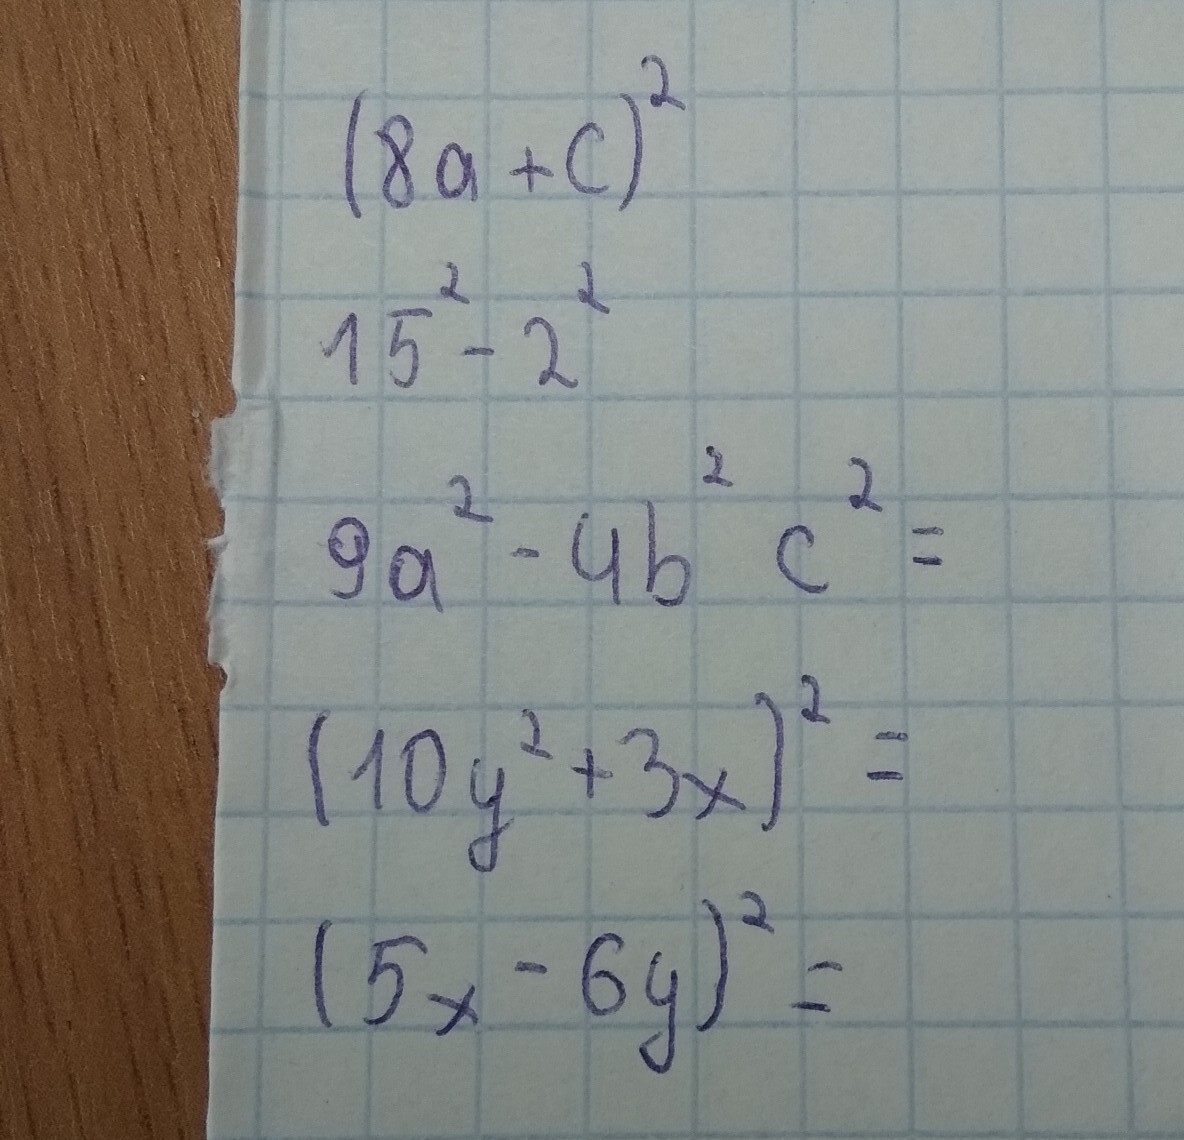 (8a+c)²
15²-2²
9a²-4b² c²=
(10y²+3x)²=
(5x-6y)²=